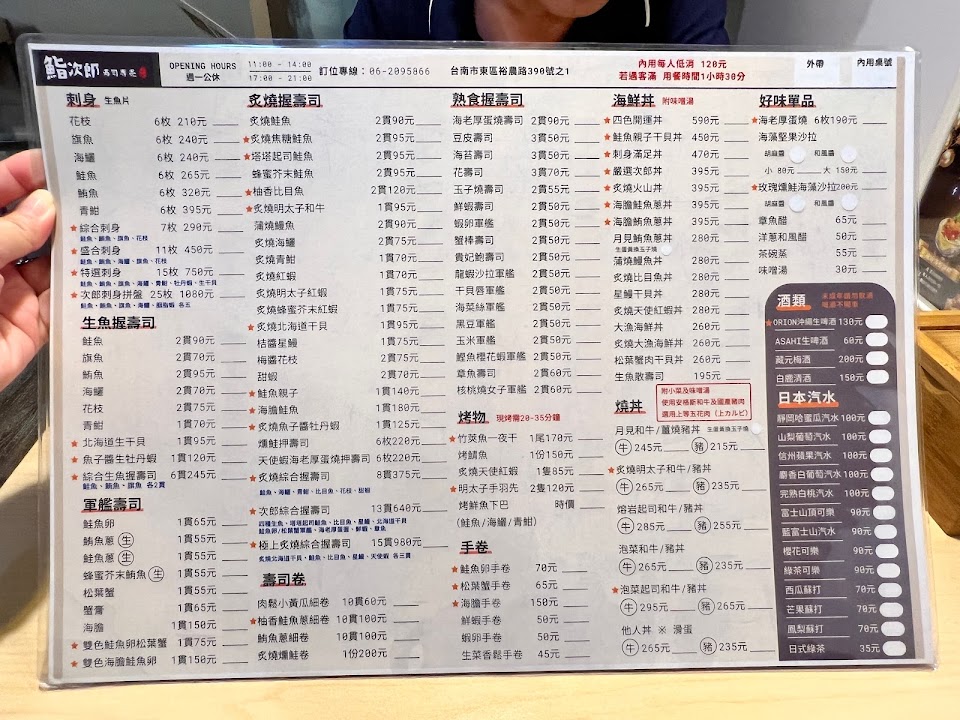 鮨次郎 壽司專賣
OPENING HOURS
週一公休
11:00 - 14:00
17:00 - 21:00
訂位專線：06-2095866
台南市東區裕農路390號之1
內用每人低消 120元
若遇客滿 用餐時間1小時30分
外帶
內用桌號
刺身 生魚片
花枝 6枚 210元
旗魚 6枚 240元
海鱺 6枚 240元
鮭魚 6枚 265元
鮪魚 6枚 320元
青魽 6枚 395元
★綜合刺身 7枚 290元
鮭魚、鮪魚、旗魚、花枝
★盛合刺身 11枚 450元
鮭魚、鮪魚、海鱺、旗魚、花枝
★特選刺身 15枚 750元
鮭魚、鮪魚、旗魚、海鱺、青魽、牡丹蝦、生干貝
★次郎刺身拼盤 25枚 1080元
鮭魚、鮪魚、旗魚、海鱺、胭脂蝦 各五
生魚握壽司
鮭魚 2貫90元
旗魚 2貫70元
鮪魚 2貫95元
海鱺 2貫70元
花枝 2貫75元
青魽 1貫70元
★北海道生干貝 1貫95元
★魚子醬生牡丹蝦 1貫120元
★綜合生魚握壽司 6貫245元
鮭魚、鮪魚、旗魚 各2貫
軍艦壽司
鮭魚卵 1貫65元
鮪魚蔥 生 1貫55元
鮭魚蔥 生 1貫55元
蜂蜜芥末鮪魚 生 1貫55元
松葉蟹 1貫55元
蟹膏 1貫55元
海膽 1貫150元
★雙色鮭魚卵松葉蟹 1貫75元
★雙色海膽鮭魚卵 1貫150元
炙燒握壽司
炙燒鮭魚 2貫90元
★炙燒焦糖鮭魚 2貫95元
★塔塔起司鮭魚 2貫95元
蜂蜜芥末鮭魚 2貫95元
★柚香比目魚 2貫120元
★炙燒明太子和牛 1貫95元
蒲燒鰻魚 2貫90元
炙燒海鱺 2貫75元
炙燒青魽 1貫70元
炙燒紅蝦 1貫70元
炙燒明太子紅蝦 1貫70元
炙燒蜂蜜芥末紅蝦 1貫70元
★炙燒北海道干貝 1貫95元
桔醬星鰻 1貫75元
梅醬花枝 2貫75元
甜蝦 2貫70元
★鮭魚親子 1貫140元
★海膽鮭魚 1貫180元
★炙燒魚子醬牡丹蝦 1貫120元
★燻鮭押壽司 6貫220元
天使蝦海老厚蛋燒押壽司 6貫220元
★炙燒綜合握壽司 8貫375元
鮭魚、海鱺、青魽、比目魚、花枝、甜蝦
★次郎綜合握壽司 13貫640元
四種生魚、塔塔起司鮭魚、比目魚、星鰻、北海道干貝
鮭魚卵/松葉蟹軍艦、海老厚蛋捲、鮮蝦、章魚
★極上炙燒綜合握壽司 15貫980元
炙燒北海道干貝、鮭魚、比目魚、星鰻、天使蝦 各三貫
壽司卷
肉鬆小黃瓜細卷 10貫60元
★柚香鮭魚蔥細卷 10貫100元
鮪魚蔥細卷 10貫100元
炙燒燻鮭卷 1份200元
熟食握壽司
海老厚蛋燒壽司 2貫90元
豆皮壽司 3貫50元
海苔壽司 3貫50元
花壽司 3貫70元
玉子燒壽司 2貫55元
鮮蝦壽司 2貫55元
蝦卵軍艦 2貫50元
蟹棒壽司 2貫50元
貴妃鮑壽司 2貫50元
龍蝦沙拉軍艦 2貫50元
干貝唇軍艦 2貫50元
海菜絲軍艦 2貫50元
黑豆軍艦 2貫50元
玉米軍艦 2貫50元
鰹魚櫻花蝦軍艦 2貫50元
章魚壽司 2貫60元
核桃燒女子軍艦 2貫60元
烤物 現烤需20-35分鐘
★竹筴魚一夜干 1尾170元
烤鯖魚 1份150元
炙燒天使紅蝦 1隻85元
★明太子手羽先 2隻120元
烤鮮魚下巴 時價
(鮭魚/海鱺/青魽)
手卷
★鮭魚卵手卷 70元
★松葉蟹手卷 65元
★海膽手卷 150元
鮮蝦手卷 50元
蝦卵手卷 50元
生菜香鬆手卷 45元
海鮮丼 附味噌湯
★四色開運丼 590元
★鮭魚親子干貝丼 450元
★刺身滿足丼 470元
★嚴選次郎丼 395元
★炙燒火山丼 395元
★海膽鮭魚蔥丼 395元
★海膽鮪魚蔥丼 395元
月見鮪魚蔥丼 280元
生蛋黃換玉子燒
蒲燒鰻魚丼 280元
炙燒比目魚丼 280元
星鰻干貝丼 280元
炙燒天使紅蝦丼 280元
大漁海鮮丼 260元
炙燒大漁海鮮丼 260元
松葉蟹肉干貝丼 260元
生魚散壽司 195元
燒丼
附小菜及味噌湯
使用安格斯和牛及國產豬肉
選用上等五花肉（上カルビ）
月見和牛/薑燒豬丼 生蛋黃換玉子燒
牛 245元 豬 215元
★炙燒明太子和牛/豬丼
牛 265元 豬 235元
熔岩起司和牛/豬丼
牛 285元 豬 255元
泡菜和牛/豬丼
牛 265元 豬 235元
★泡菜起司和牛/豬丼
牛 295元 豬 265元
他人丼 ※ 滑蛋
牛 265元 豬 235元
好味單品
★海老厚蛋燒 6枚190元
海藻堅果沙拉
胡麻醬 和風醬
小 80元 大 150元
★玫瑰燻鮭海藻沙拉200元
胡麻醬 和風醬
章魚醋 65元
洋蔥和風醋 50元
茶碗蒸 55元
味噌湯 30元
酒類 未成年請勿飲酒
喝酒不開車
★ORION沖繩生啤酒 130元
ASAHI生啤酒 60元
藏元梅酒 200元
白鹿清酒 150元
日本汽水
靜岡哈蜜瓜汽水 100元
山梨葡萄汽水 100元
信州蘋果汽水 100元
麝香白葡萄汽水 100元
完熟白桃汽水 100元
富士山頂可樂 90元
藍富士山汽水 90元
櫻花可樂 90元
綠茶可樂 90元
西瓜蘇打 70元
芒果蘇打 70元
鳳梨蘇打 70元
日式綠茶 35元